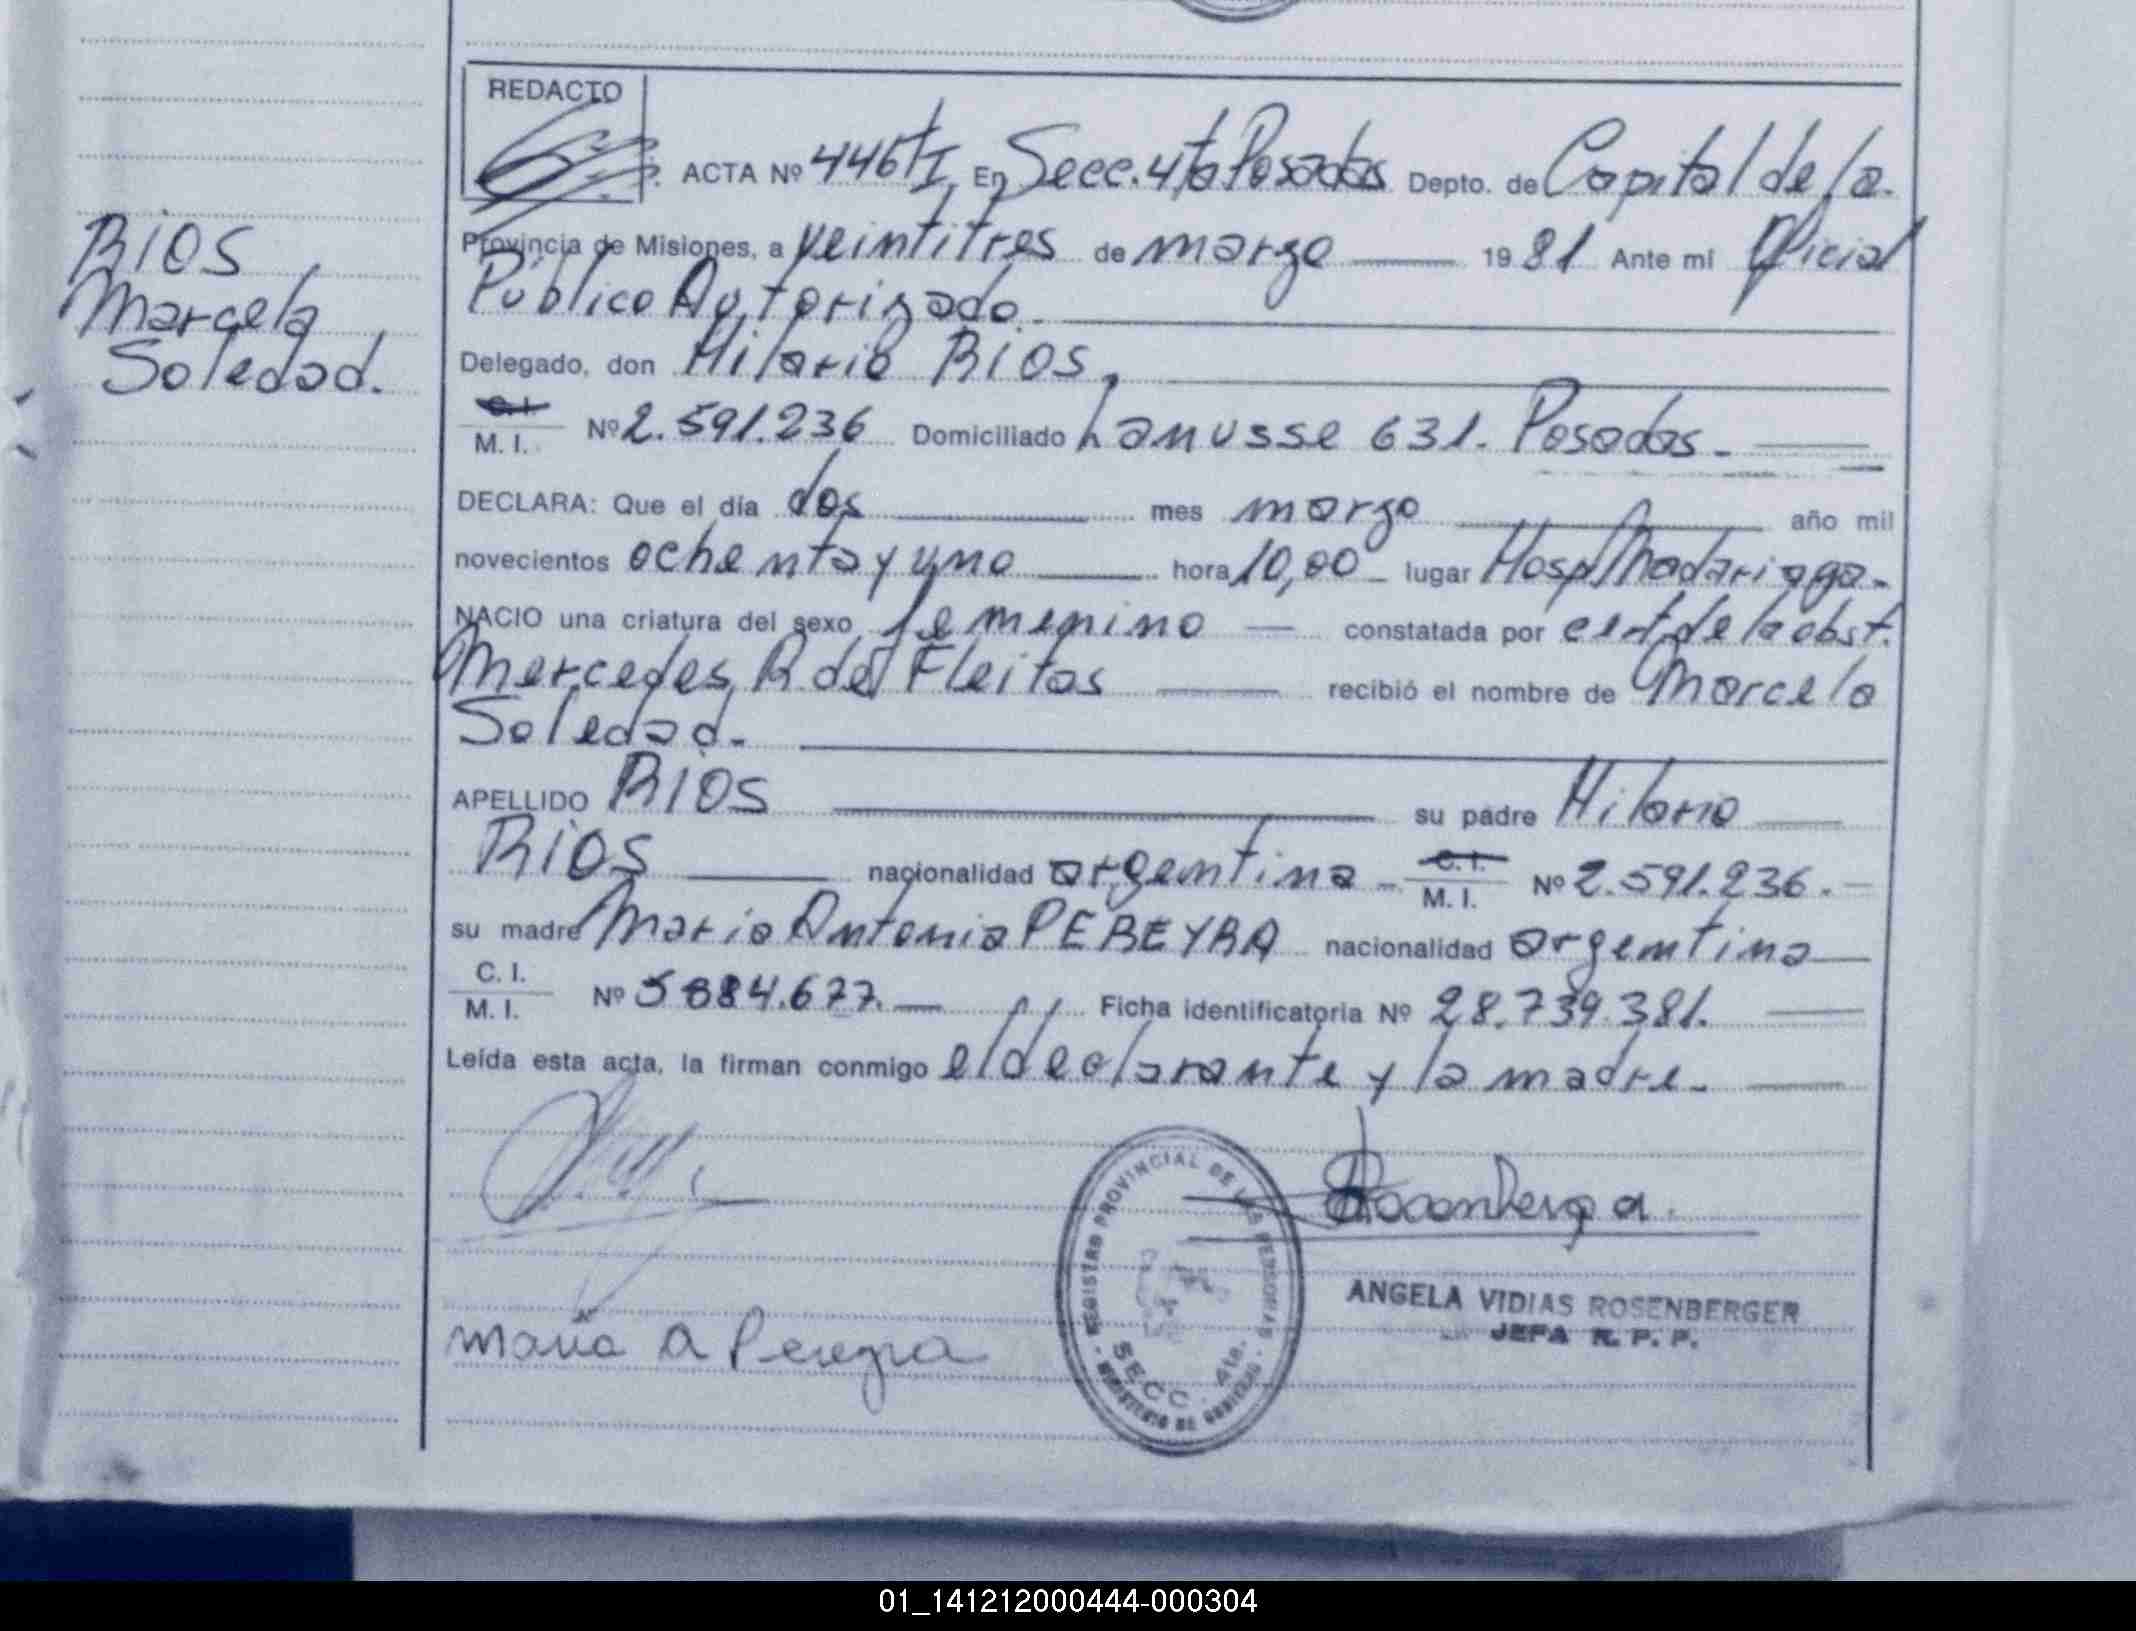 REDACTO
ACTA Nº 446 TI, En Secc. 4ta Posadas Depto. de Capital de la.
Provincia de Misiones, a veintitres de marzo 1981 Ante mi Oficial
Público Autorizado.
Delegado, don Hilario RIOS,
C. I.
M. I. Nº 2.591.236 Domiciliado Lanusse 631. Posadas.
DECLARA: Que el día dos mes marzo año mil
novecientos ochenta y uno hora 10,00 lugar Hosp Madariaga.
NACIO una criatura del sexo femenino constatada por cert. de la obst.
Mercedes R. de Fleitas recibió el nombre de Marcela
Soledad.
APELLIDO RIOS su padre Hilario
RIOS nacionalidad argentina C. I.
M. I. Nº 2.591.236.
su madre Maria Antonia PEREYRA nacionalidad argentina
C. I.
M. I. Nº 5884.677. Ficha identificatoria Nº 28.739.381.
Leída esta acta, la firman conmigo el declarante y la madre.
RIOS
Marcela
Soledad.
Maria A Pereyra
REGISTRO PROVINCIAL DE LAS PERSONAS
SECC. 4ta.
MINISTERIO DE GOBIERNO
ANGELA VIDIAS ROSENBERGER
JEFA R. P. P.
01_141212000444-000304